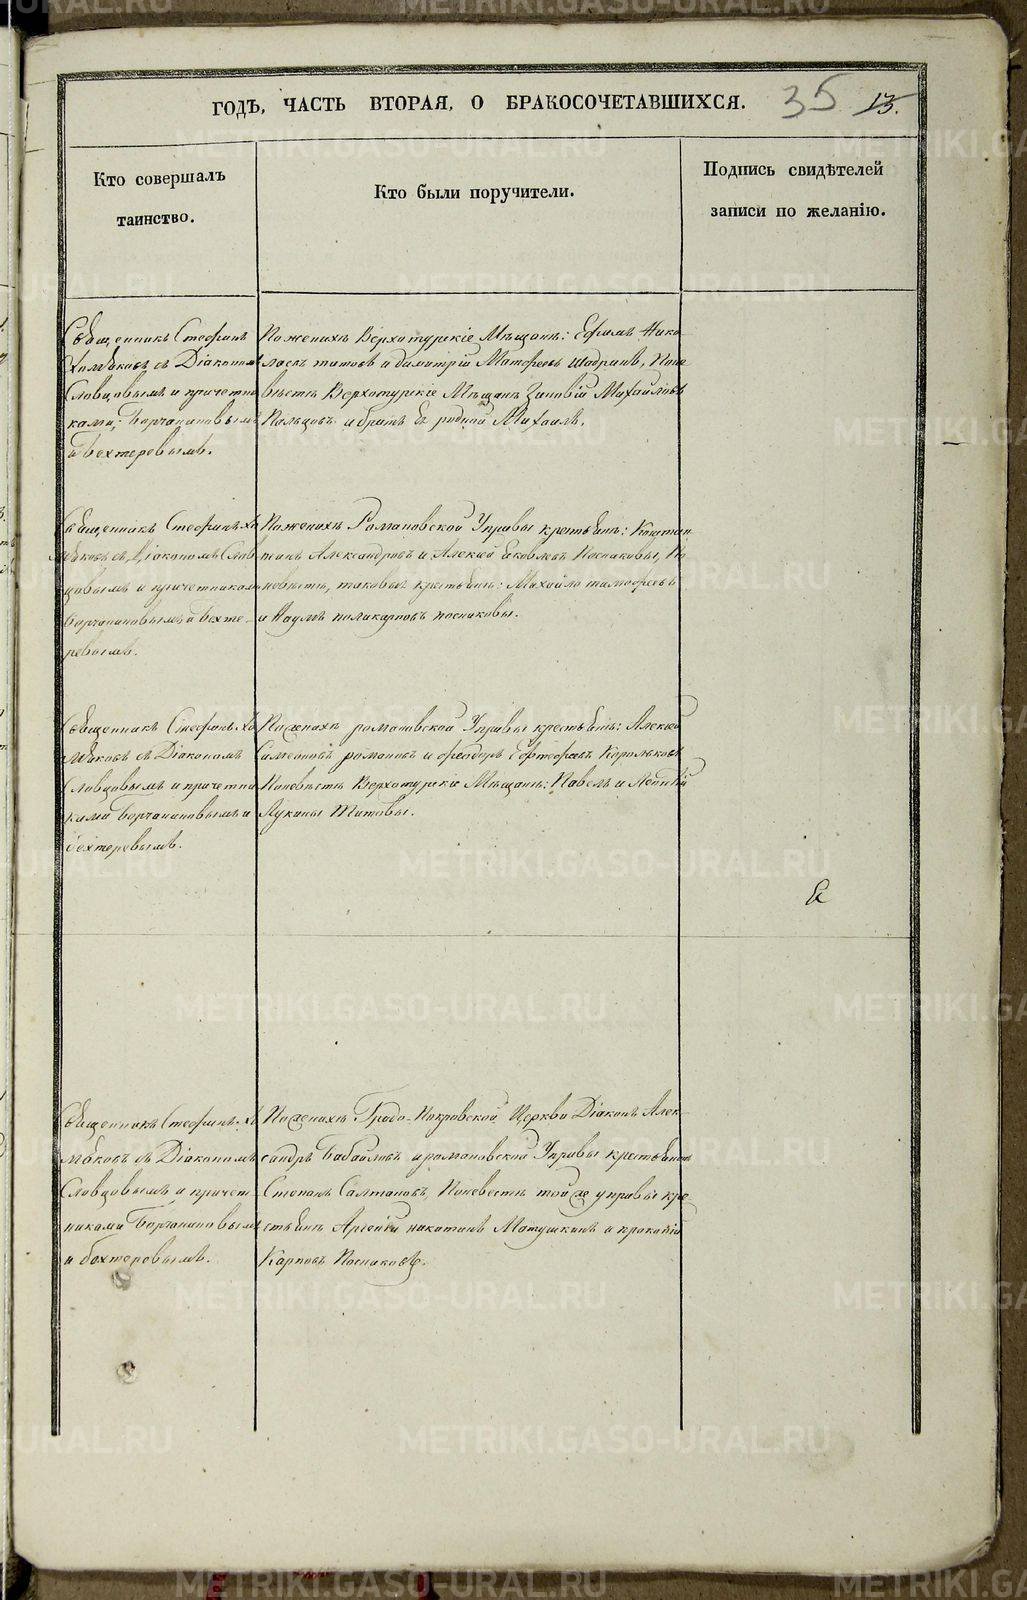 ГОДЪ, ЧАСТЬ ВТОРАЯ, О БРАКОСОЧЕТАВШИХСЯ.
35
13.
Кто совершалъ
таинство.
Кто были поручители.
Подпись свидѣтелей
записи по желанію.
Священникъ Стефанъ
Хомяковъ съ Діакономъ
Словцовымъ и причетни
ками: Борчаниновымъ
и Бехтеревымъ.
По женихѣ Верхотурскіе Мѣщане: Ефимъ Нико
лаевъ титовъ и Димитрій Матфеевъ Шадринъ, По не
вѣстѣ Верхотурскіе Мѣщанъ Зиновій Михайловъ
Пальцовъ и братъ ея родной Михаилъ.
Священникъ Стефанъ Хо
мяковъ съ Діакономъ Слов
цовымъ и причетниками
Борчаниновымъ и Бехте-
ревымъ.
По женихѣ Романовской Управы крестьяне: Констан
тинъ Александровъ и Алексѣй Яковлевъ Постаковы, По
невѣстѣ, таковые крестьяне: Михайло тимофеевъ
и Наумъ поликарповъ постаковы.
Священникъ Стефанъ Хо
мяковъ съ Діакономъ
Словцовымъ и причетни
ками Борчаниновымъ и
Бехтеревымъ.
По женихѣ романовской Управы крестьяне: Алексей
Симеоновъ романовъ и феодоръ Корольковъ
По невѣстѣ Верхотурскіе Мѣщане: Павелъ и
Лукины Титовы.
Священникъ Стефанъ Хо
мяковъ съ Діакономъ
Словцовымъ и причет
никами Борчаниновымъ
и бехтеревымъ.
По женихѣ Градо-Покровской Церкви Діаконъ Алек-
сандръ Бабайловъ и романовской Управы крестьянинъ
Степанъ Салтановъ, По невестѣ той же управы кре-
стьяне Арсеній никитинъ Матушкинъ и прокопій
Карповъ Постаковъ.
METRIKI.GASO-URAL.RU